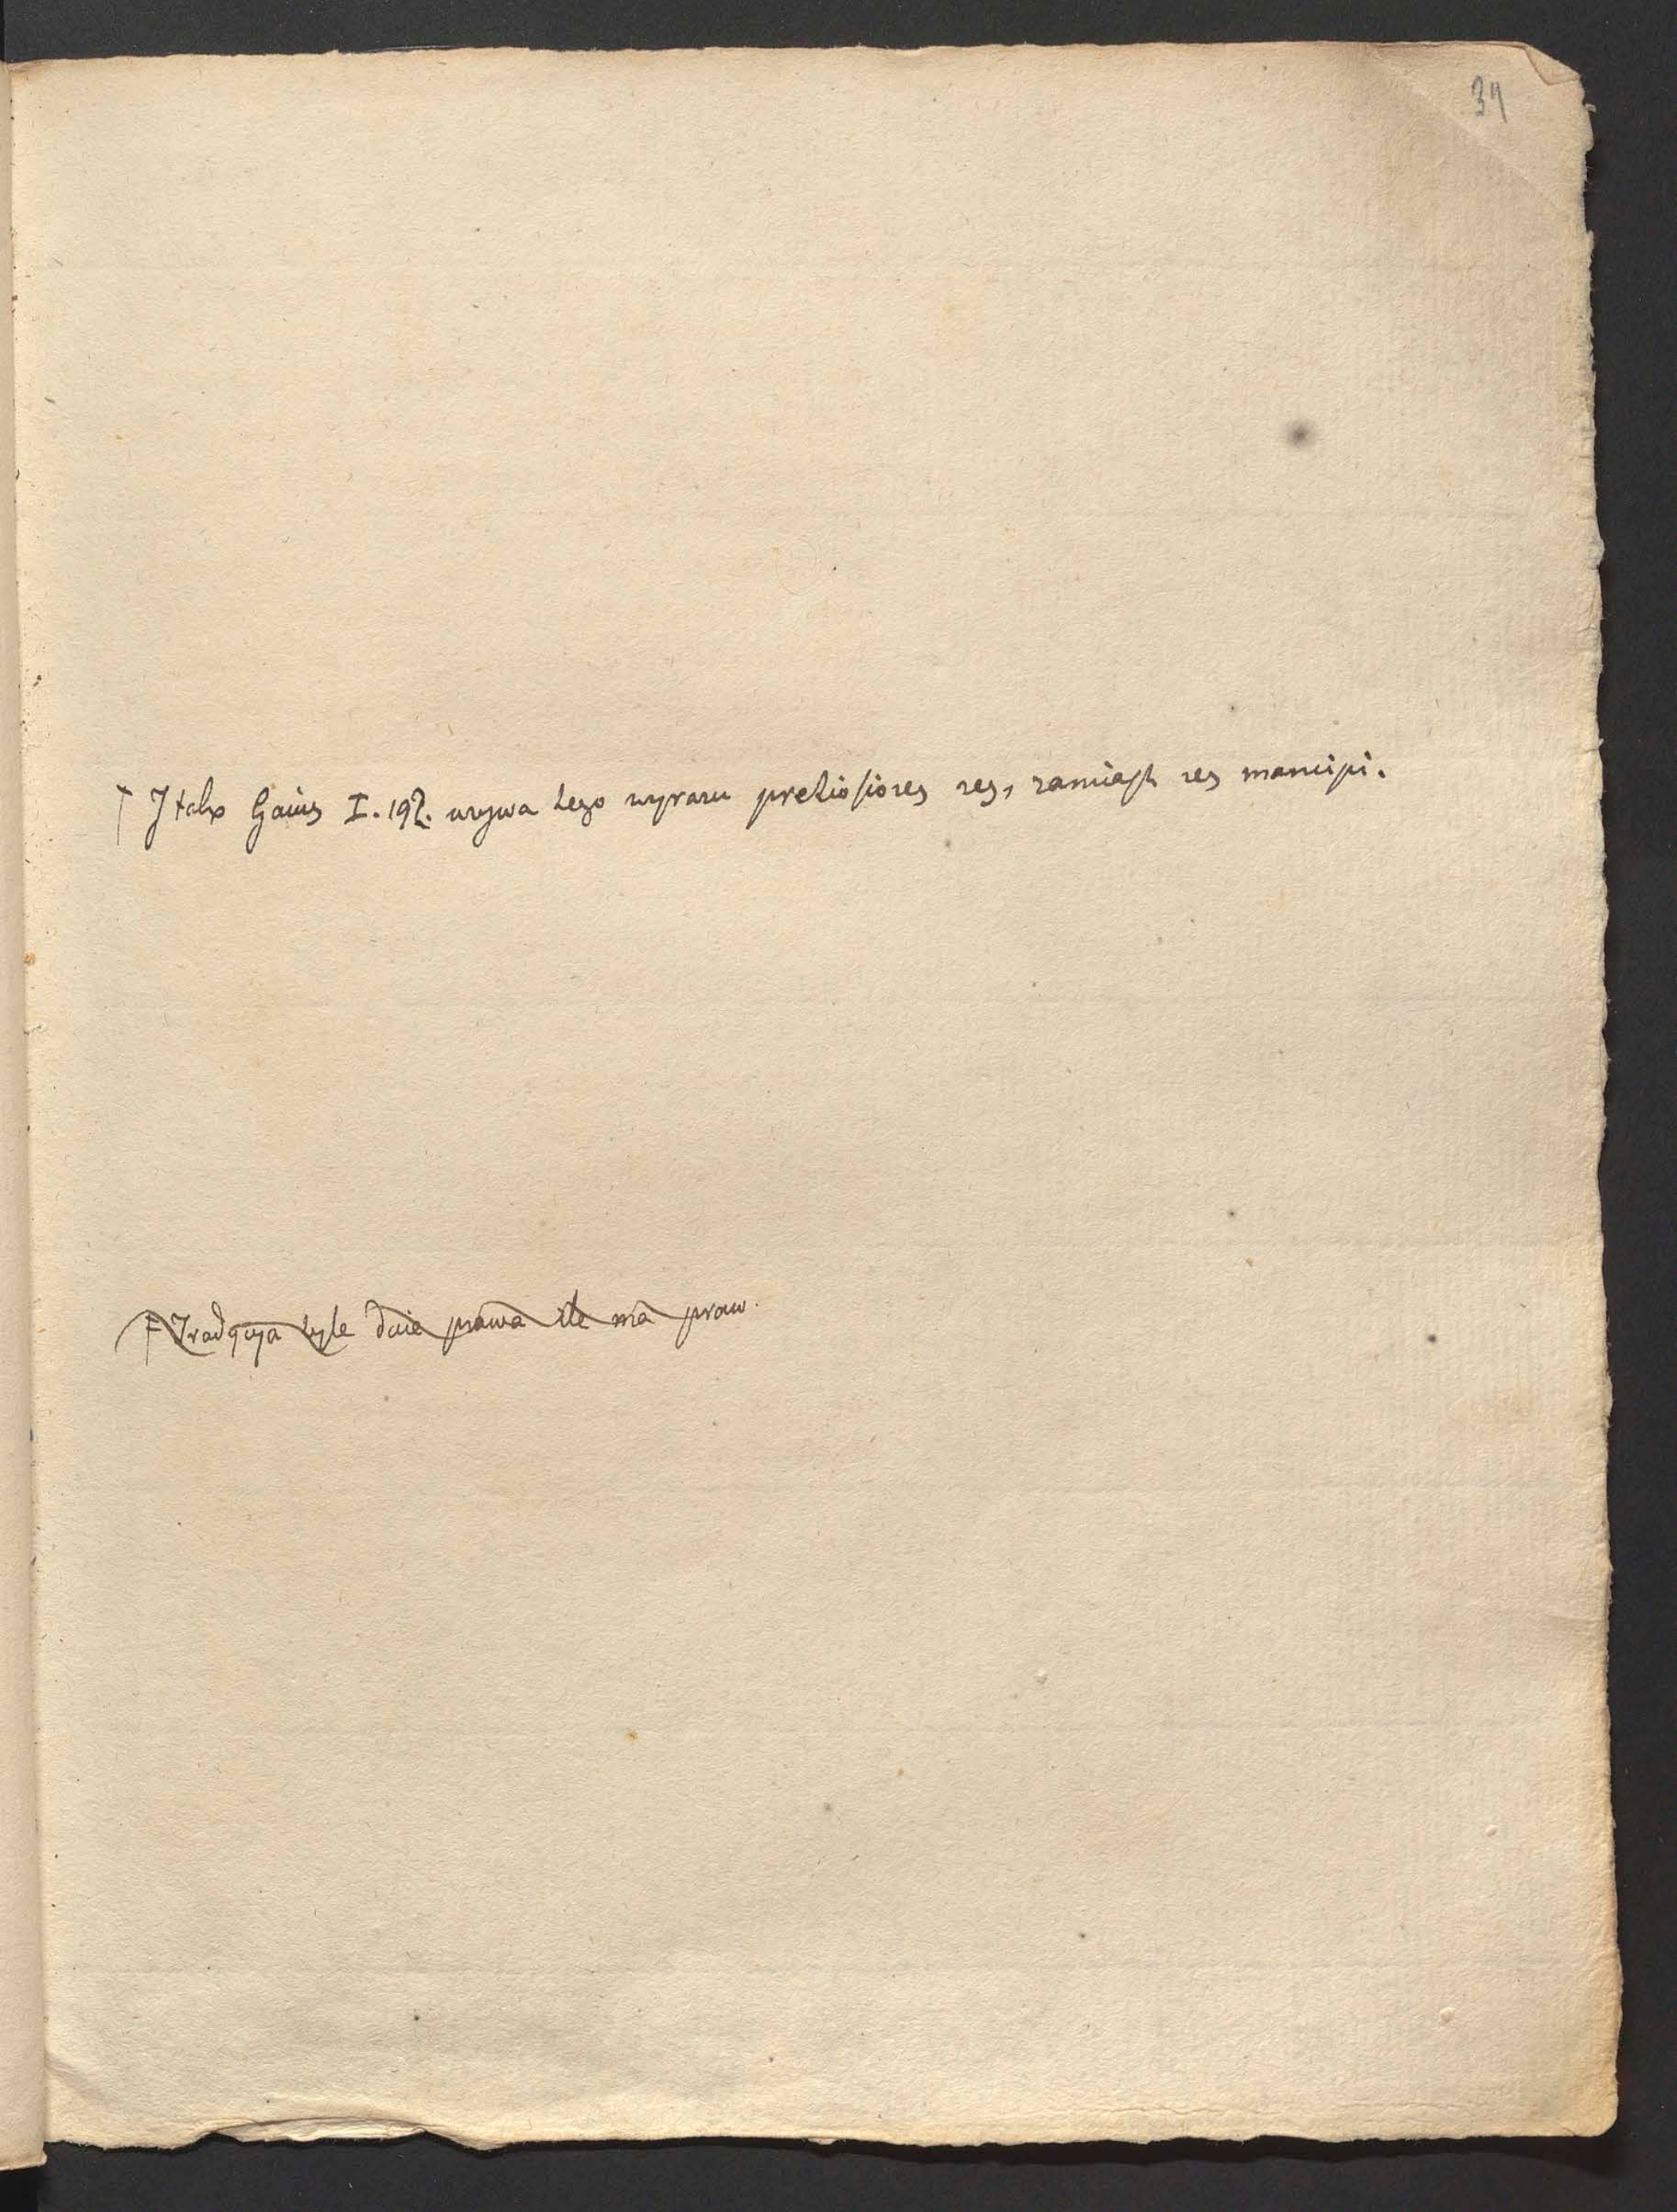 34
† I tak Gaius I. 192. uzywa tego wyrazu pretiosiores res, zamiast res mancipi.
F Tradycya tyle daie prawa ile ma praw.